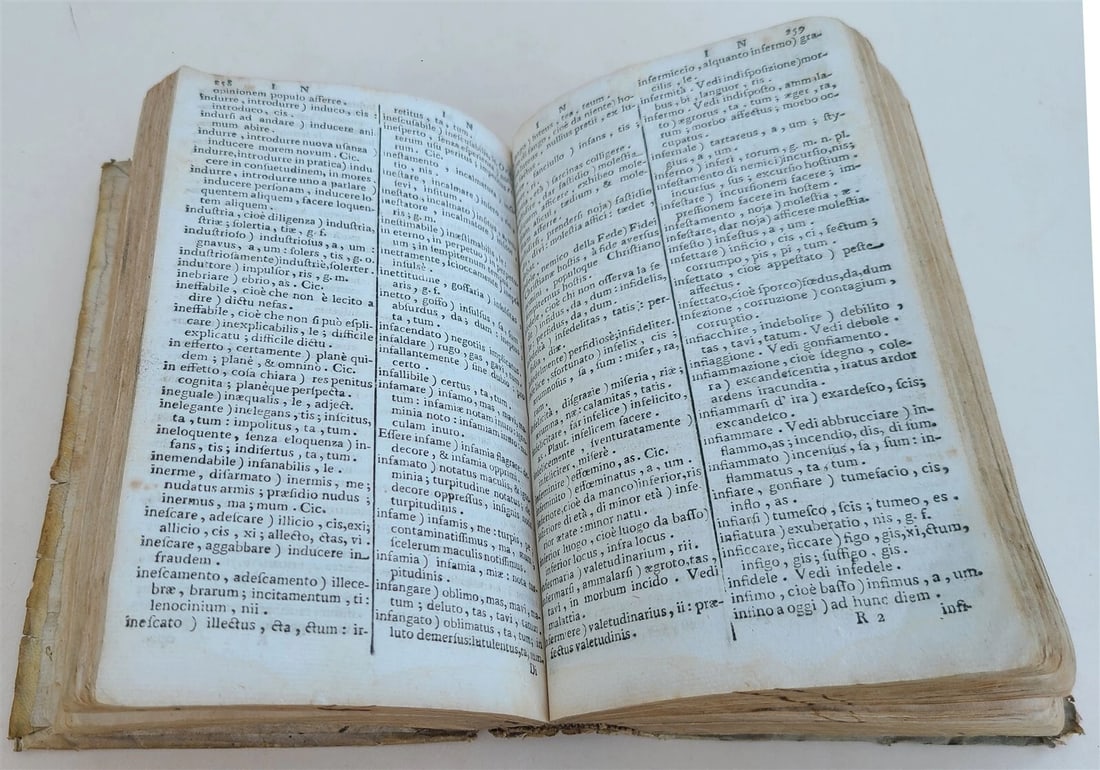 258 I N
opinionem populo afferre.
indurre, introdurre) induco, cis:
introduco, cis.
indursi ad andare) inducere ani
mum abire.
indurre, introdurre nuova usanza)
inducere morem novum. Cic.
indurre, introdurre in pratica) indu
cere in consuetudinem, in mores.
indurre, introdurre uno a parlare)
inducere personam, inducere lo
quentem aliquem, facere loquen
tem aliquem.
industria, cioè diligenza) industria,
striæ; solertia, tiæ, g. f.
industrioso) industriosus, a, um:
gnavus, a, um: solers, tis, g. o.
industriosamente) industriè, solerter.
induttore) impulsor, ris, g. m.
inebriare) ebrio, as. Cic.
ineffabile, cioè che non è lecito a
dire) dictu nefas.
ineffabile, cioè che non si può espli-
care) inexplicabilis, le; difficile
explicatu; difficile dictu.
in efferto, certamente) planè qui-
dem; planè, & omnino. Cic.
in effetto, cosa chiara) res penitus
cognita; planèque perspecta.
ineguale) inæqualis, le, adject.
inelegante) inelegans, tis; inscitus,
ta, tum: impolitus, ta, tum.
ineloquente, senza eloquenza) in-
fans, tis; indisertus, ta, tum.
inemendabile) insanabilis, le.
inerme, disarmato) inermis, me;
nudatus armis; præsidio nudus;
inermus, ma; mum. Cic.
inescare, adescare) illicio, cis, exi;
allicio, cis, xi; allecto, ctas, vi.
inescare, aggabbare) inducere in
fraudem.
inescamento, adescamento) illece-
bræ, brarum; incitamentum, ti:
lenocinium, nii.
inescato) illectus, cta, ctum: ir-
I N
retitus, ta, tum.
inescusabile) inexcusabilis
inesperto,
rerum usu
rum. Cic.
inestamento,
tio, nis.
inestare, incalmare)
sevi,
inestato, incalmato)
inestatore, incalmatore)
ris; g. m.
inestimabile) inæstimabilis,
in eterno, in perpetuo)
um; in sempiternum
inettamente, scioccamente
insulsè.
inettitudine, goffaria)
aris, g. f.
inetto, goffo) insulsus, sa,
absurdus, da; dum;
ta, tum.
infacendato) negotiis
infaldare) rugo, gas,
infallantemente) sine dubio
certo.
infallibile) certus, ta, tum.
infamare) infamo, mas,
tum: infamiæ notam
minia noto: infamiam
culam inuro.
Essere infame) infamia flagrare
decore, & infamia opprimi
infamato) notatus maculis
minia; turpitudine notatus
decore oppressus, insigni
turpitudinis.
infame) infamis, me: turpis, pe
contaminatissimus, ma,
scelerum maculis notissimus
infamia) infamia, miæ: nota,
pitudinis.
infangare) oblimo, mas, mavi,
tum; deluto, tas, tavi, tatum.
infangato) oblimatus, ta, tum; in
luto demersus: lutulentus, ta, tum.
Di
I N
nullius pretii,
fanciullo) infans, tis;
tà, sarcinas colligere.
dar fastidio) molestia
afficere; exhibeo mole-
alicui.
tædium, & mole-
prendersi noja) fastidio
molestia affici: tædet,
nemico della Fede) Fidei
hostis, à fide aversus
propterque Christiano
hostis.
che non osserva la fe
infidus, da, dum: infidelis,
infedelitas, tatis: per-
diæ.
perfidiosè; infideliter.
fortunato) infelix, cis;
ærumnosus, sa, sum: miser, ra,
disgrazie) miseria, riæ;
næ: calamitas, tatis.
far infelice) infelicito,
Plaut. infelicem facere.
sventuratamente)
infeliciter; miserè.
effœmino, as. Cic.
effœminatus, a, um.
cioè da manco) inferior, ris
inferiore di età, di minor età) infe-
rior ætate: minor natu.
inferior luogo, cioè luogo da basso)
inferior locus, infra locus.
infermaria) valetudinarium, rii.
infermarsi, ammalarsi) ægroto, tas,
tavi, in morbum incido. Vedi
malattia.
infermiere) valetudinarius, ii: præ-
fectus valetudinis.
I N 259
infermiccio, alquanto infermo) gra-
cilis, le.
infermità. Vedi indisposizione) mor-
bus, bi, languor, ris.
infermo. Vedi indisposto, ammala-
to) ægrotus, ta, tum; æger, ta,
rum; morbo affectus; morbo oc-
cupatus.
infernale) tartareus, a, um; sty-
gius, a, um.
inferno) inferi, rorum, g. m. n. pl.
infestamento di nemici) incursio, nis;
incursus, sus; excursio hostium.
infestare) incursionem facere; im-
pressionem facere in hostem.
infestamento, noja) molestia, æ.
infestare, dar noja) afficere molestia.
infesto) infestus, a, um.
infettare) inficio, cis, ci, fectum;
corrumpo, pis, pi, tum.
infettato, cioè appestato) peste
affectus.
infettato, cioè sporco) fœdus, da, dum
infezione, corruzione) contagium,
corruptio.
infiacchire, indebolire) debilito,
tas, tavi, tatum. Vedi debole.
infiaggione. Vedi gonfiamento.
infiammazione, cioè sdegno, cole-
ra) excandescentia, iratus ardor
ardens iracundia.
infiammarsi d' ira) exardesco, scis;
excandesco.
infiammare. Vedi abbrucciare) in-
flammo, as; incendio, dis, di sum.
infiammato) incensus, sa, sum: in-
flammatus, ta, tum.
infiare, gonfiare) tumefacio, cis,
inflo, as.
infiarsi) tumesco, scis; tumeo, es.
infiatura) exuberatio, nis, g. f.
inficcare, ficcare) figo, gis, xi, ctum,
infigo, gis; suffigo, gis.
infidele. Vedi infedele.
infimo, cioè basso) infimus, a, um.
infino a oggi) ad hunc diem.
R 2 infi-